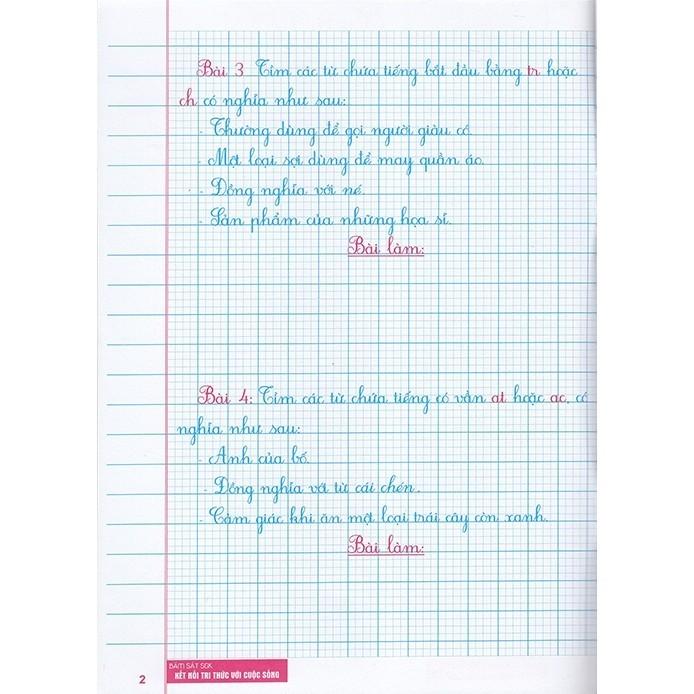 Bài 3 Tìm các từ chứa tiếng bắt đầu bằng tr hoặc
ch có nghĩa như sau:
- Thường dùng để gọi người giàu có.
- Một loại sợi dùng để may quần áo.
- Đồng nghĩa với né.
- Sản phẩm của những họa sĩ.
Bài làm:
Bài 4: Tìm các từ chứa tiếng có vần at hoặc ac, có
nghĩa như sau:
- Anh của bố.
- Đồng nghĩa với từ cái chén.
- Cảm giác khi ăn một loại trái cây còn xanh.
Bài làm:
2
BÁM SÁT SGK
KẾT NỐI TRI THỨC VỚI CUỘC SỐNG